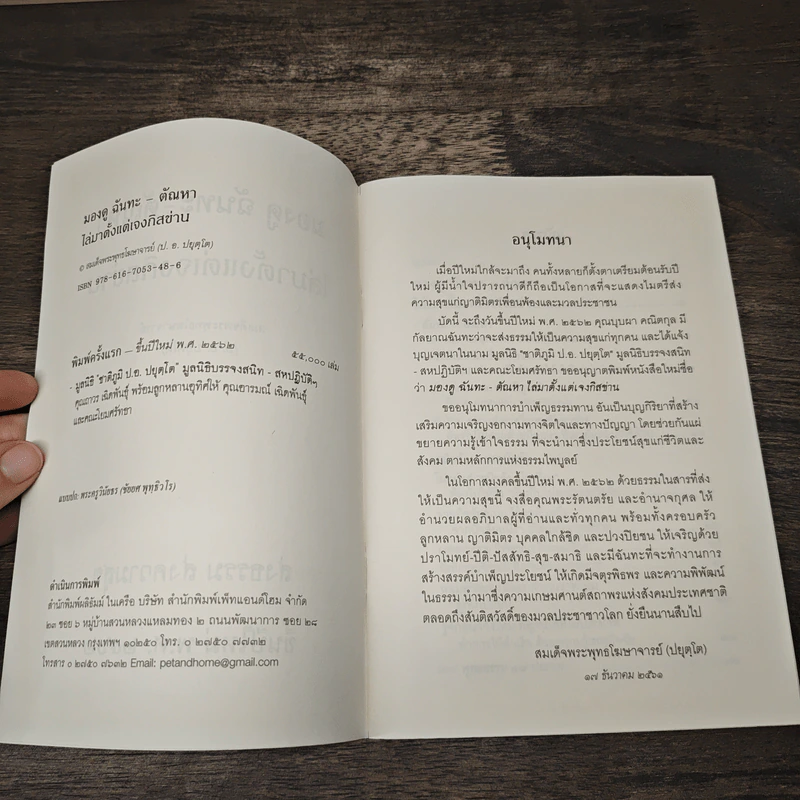 มองดู ฉันทะ – ตัณหา
ไล่มาตั้งแต่เจงกิสข่าน
© สมเด็จพระพุทธโฆษาจารย์ (ป. อ. ปยุตฺโต)
ISBN 978-616-7053-48-6
พิมพ์ครั้งแรก — ขึ้นปีใหม่ พ.ศ. ๒๕๖๒ ๕๕,๐๐๐ เล่ม
- มูลนิธิ "ชาติภูมิ ป.อ. ปยุตฺโต" มูลนิธิบรรจงสนิท - สหปฏิบัติฯ
คุณถาวร เฉิดพันธุ์ พร้อมลูกหลานอุทิศให้ คุณอารมณ์ เฉิดพันธุ์
และคณะโยมศรัทธา
แบบปก: พระครูวินัยธร (ชัยยศ พุทฺธิวโร)
ดำเนินการพิมพ์
สำนักพิมพ์ผลิธัมม์ ในเครือ บริษัท สำนักพิมพ์เพ็ทแอนด์โฮม จำกัด
๒๓ ซอย ๖ หมู่บ้านสวนหลวงแหลมทอง ๒ ถนนพัฒนาการ ซอย ๒๘
เขตสวนหลวง กรุงเทพฯ ๑๐๒๕๐ โทร. ๐ ๒๗๕๐ ๗๗๓๒
โทรสาร ๐ ๒๗๕๐ ๗๖๓๒ Email: petandhome@gmail.com
อนุโมทนา
เมื่อปีใหม่ใกล้จะมาถึง คนทั้งหลายก็ตั้งตาเตรียมต้อนรับปี
ใหม่ ผู้มีน้ำใจปรารถนาดีก็ถือเป็นโอกาสที่จะแสดงไมตรีส่ง
ความสุขแก่ญาติมิตรเพื่อนพ้องและมวลประชาชน
บัดนี้ จะถึงวันขึ้นปีใหม่ พ.ศ. ๒๕๖๒ คุณบุบผา คณิตกุล มี
กัลยาณฉันทะว่าจะส่งธรรมให้เป็นความสุขแก่ทุกคน และได้แจ้ง
บุญเจตนาในนาม มูลนิธิ "ชาติภูมิ ป.อ. ปยุตฺโต" มูลนิธิบรรจงสนิท
- สหปฏิบัติฯ และคณะโยมศรัทธา ขออนุญาตพิมพ์หนังสือใหม่ชื่อ
ว่า มองดู ฉันทะ - ตัณหา ไล่มาตั้งแต่เจงกิสข่าน
ขออนุโมทนาการบำเพ็ญธรรมทาน อันเป็นบุญกิริยาที่สร้าง
เสริมความเจริญงอกงามทางจิตใจและทางปัญญา โดยช่วยกันแผ่
ขยายความรู้เข้าใจธรรม ที่จะนำมาซึ่งประโยชน์สุขแก่ชีวิตและ
สังคม ตามหลักการแห่งธรรมไพบูลย์
ในโอกาสมงคลขึ้นปีใหม่ พ.ศ. ๒๕๖๒ ด้วยธรรมในสารที่ส่ง
ให้เป็นความสุขนี้ จงสื่อคุณพระรัตนตรัย และอำนาจกุศล ให้
อำนวยผลอภิบาลผู้ที่อ่านและทั่วทุกคน พร้อมทั้งครอบครัว
ลูกหลาน ญาติมิตร บุคคลใกล้ชิด และปวงปิยชน ให้เจริญด้วย
ปราโมทย์-ปีติ-ปัสสัทธิ-สุข-สมาธิ และมีฉันทะที่จะทำงานการ
สร้างสรรค์บำเพ็ญประโยชน์ ให้เกิดมีจตุรพิธพร และความพิพัฒน์
ในธรรม นำมาซึ่งความเกษมศานต์สถาพรแห่งสังคมประเทศชาติ
ตลอดถึงสันติสวัสดิ์ของมวลประชาชาวโลก ยั่งยืนนานสืบไป
สมเด็จพระพุทธโฆษาจารย์ (ปยุตฺโต)
๑๗ ธันวาคม ๒๕๖๑